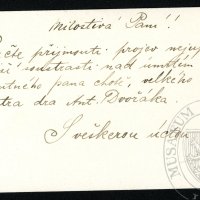 Milostivá Paní!!
čte přijmouti projev nejup
ší soustrasti nad úmrtím
utného pana chotě, velkého
stra dra Ant. Dvořáka.
S veškerou úctou
MUSAEUM